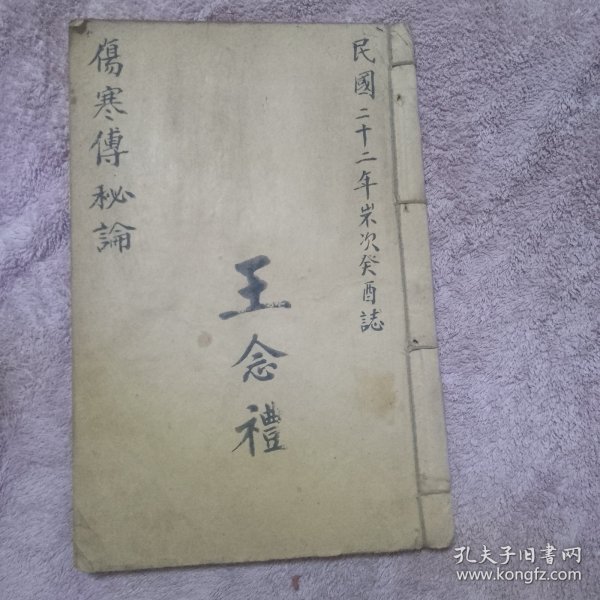 民國二十二年岁次癸酉誌
王念禮
傷寒傅秘論
孔夫子旧書网
www.kongfz.com